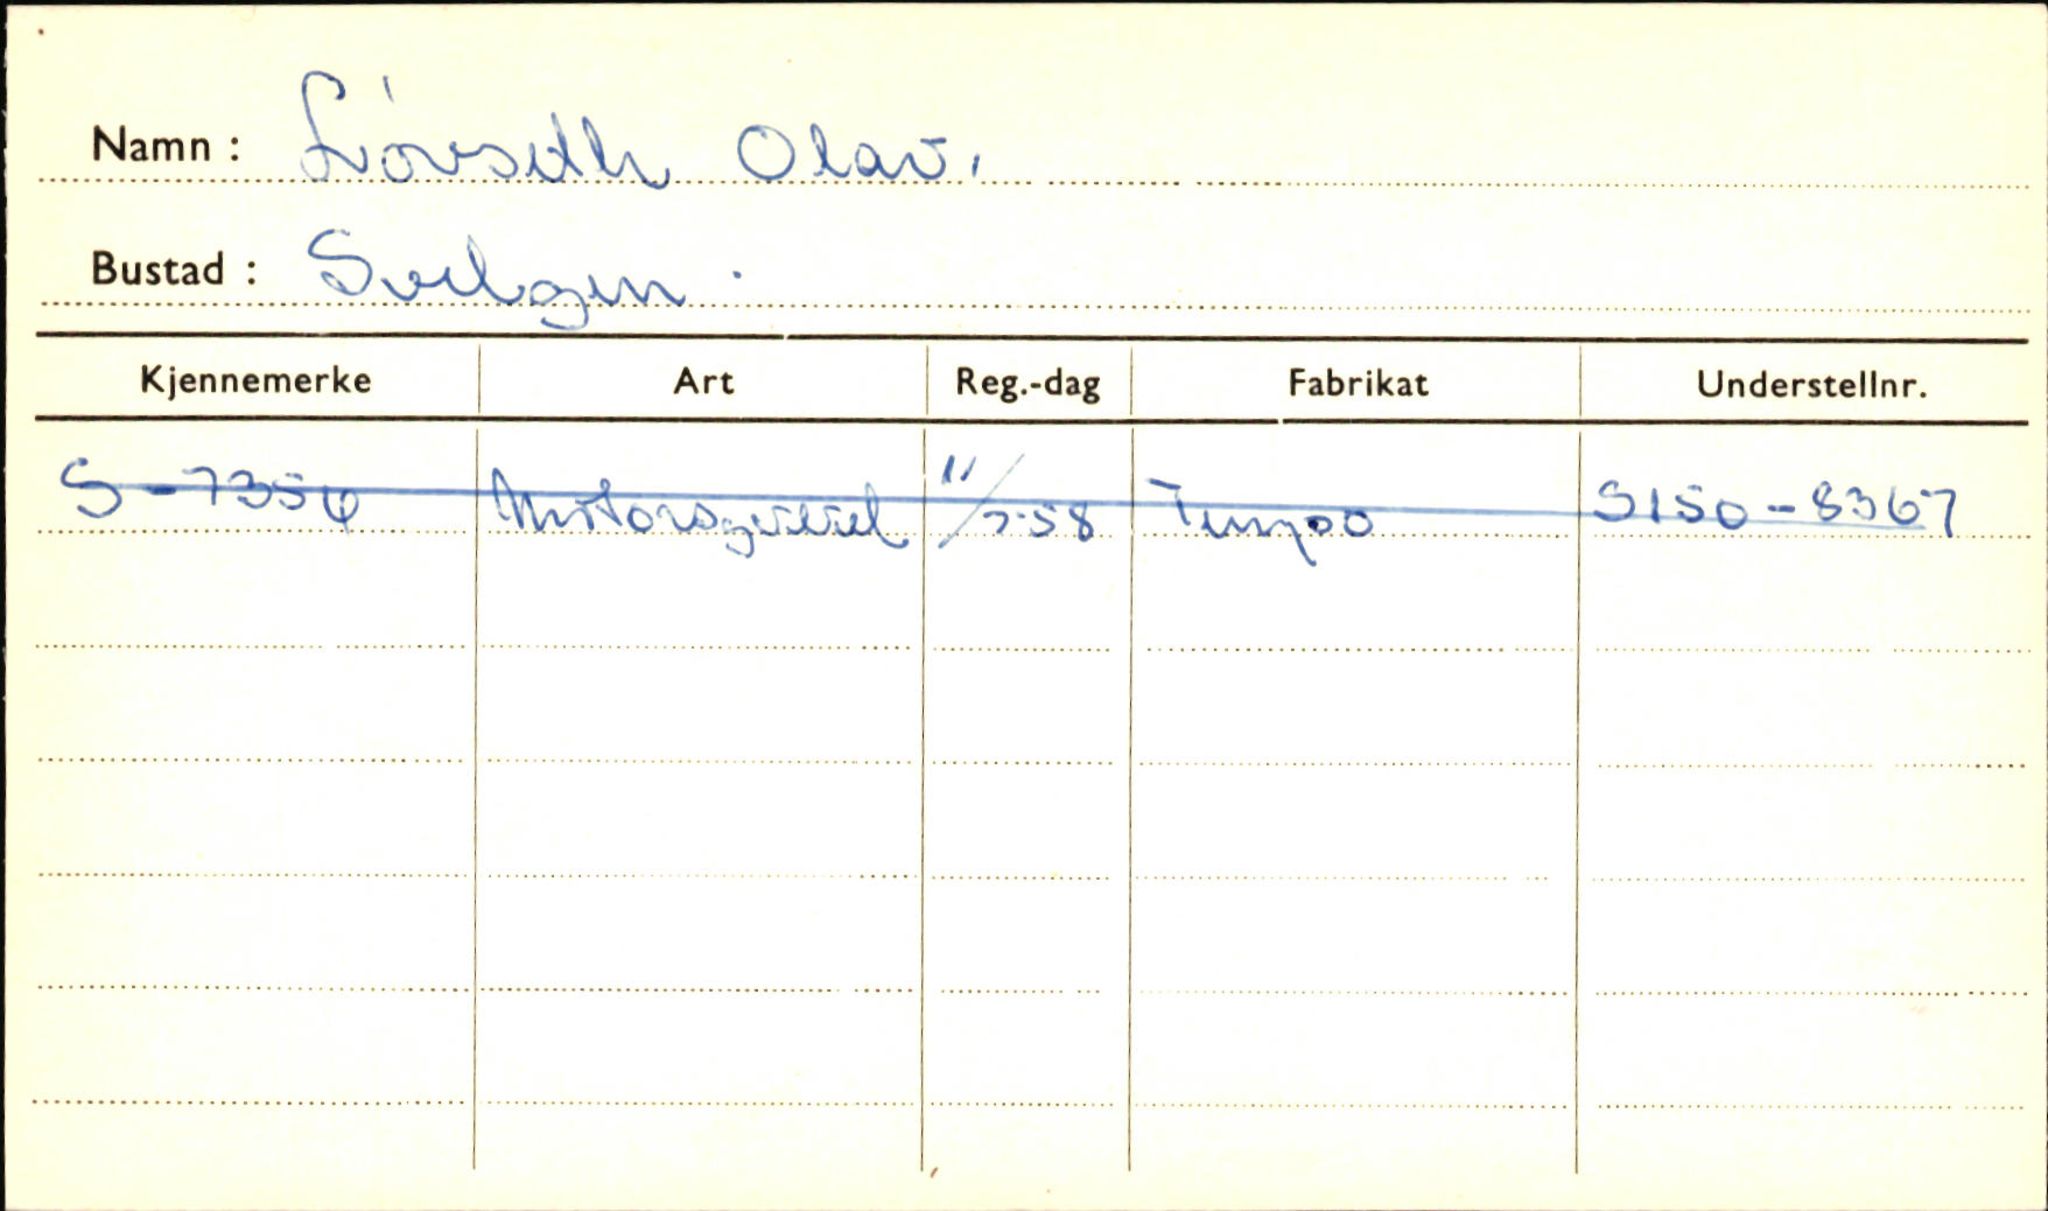 Namn : Lövseth Olav.
Bustad : Svelgen.
Kjennemerke Art Reg.-dag Fabrikat Understellnr.
S-7354 Motorsykkel 11/7-58 Tempo S150-8367